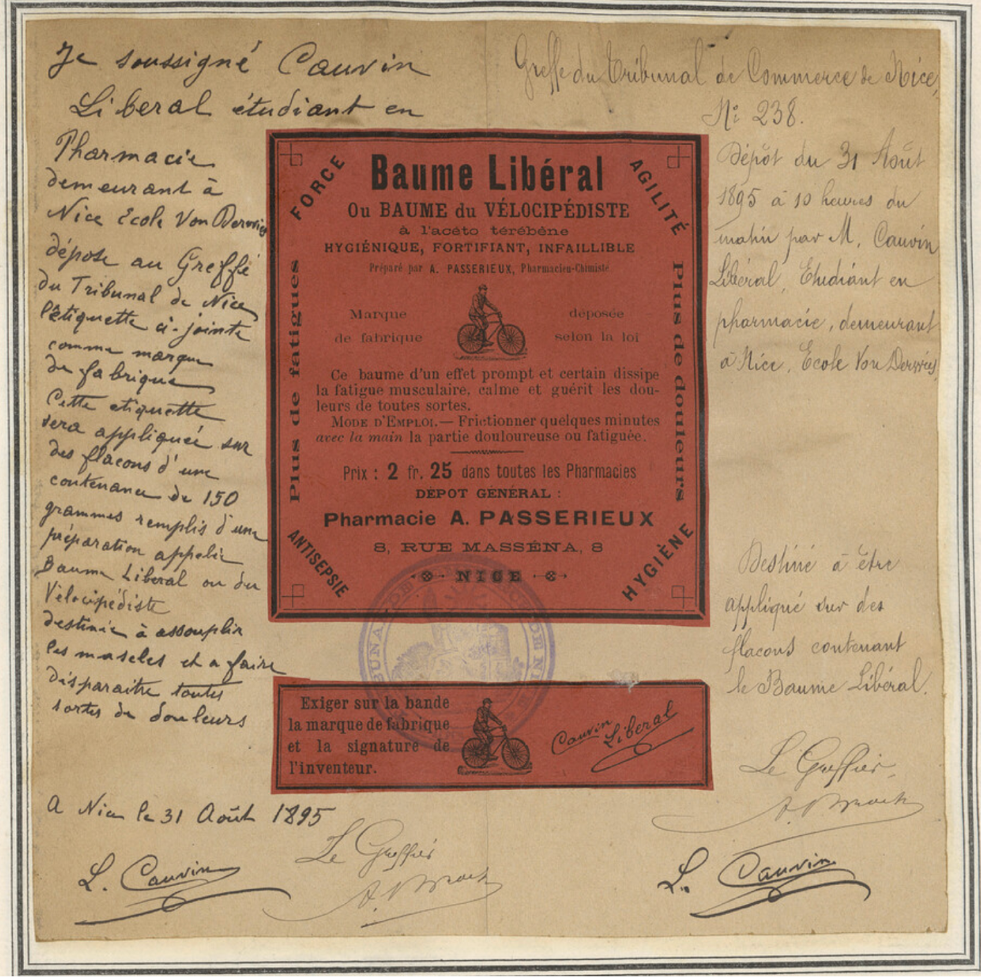 Je soussigné Cauvin
Liberal étudiant en
Pharmacie
demeurant à
Nice Ecole Von Dervies
dépose au Greffe
du Tribunal de Nice
l'étiquette ci-jointe
comme marque
de fabrique
Cette etiquette
sera appliquée sur
des flacons d'une
contenance de 150
grammes remplis d'une
préparation appelée
Baume Liberal ou du
Vélocipédiste
destinée à assouplir
les muscles et a faire
disparaitre toutes
sortes de douleurs
A Nice le 31 Août 1895
L. Cauvin
Le Greffier
FORCE
AGILITÉ
Baume Libéral
Ou BAUME du VÉLOCIPÉDISTE
à l'acéto térébène
HYGIÉNIQUE, FORTIFIANT, INFAILLIBLE
Préparé par A. PASSERIEUX, Pharmacien-Chimiste
Marque déposée
de fabrique selon la loi
Plus de fatigues
Plus de douleurs
Ce baume d'un effet prompt et certain dissipe
la fatigue musculaire, calme et guérit les dou-
leurs de toutes sortes.
MODE D'EMPLOI. — Frictionner quelques minutes
avec la main la partie douloureuse ou fatiguée.
Prix : 2 fr. 25 dans toutes les Pharmacies
DEPOT GÉNÉRAL :
Pharmacie A. PASSERIEUX
8, RUE MASSÉNA, 8
NICE
ANTISEPSIE
HYGIÈNE
Exiger sur la bande
la marque de fabrique
et la signature de
l'inventeur.
Cauvin
Liberal
Greffe du Tribunal de Commerce de Nice,
N° 238.
Dépôt du 31 Août
1895 à 10 heures du
matin par M. Cauvin
Libéral, Etudiant en
pharmacie, demeurant
à Nice, Ecole Von Derviés.
Destiné à être
appliqué sur des
flacons contenant
le Baume Libéral.
Le Greffier,
L. Cauvin